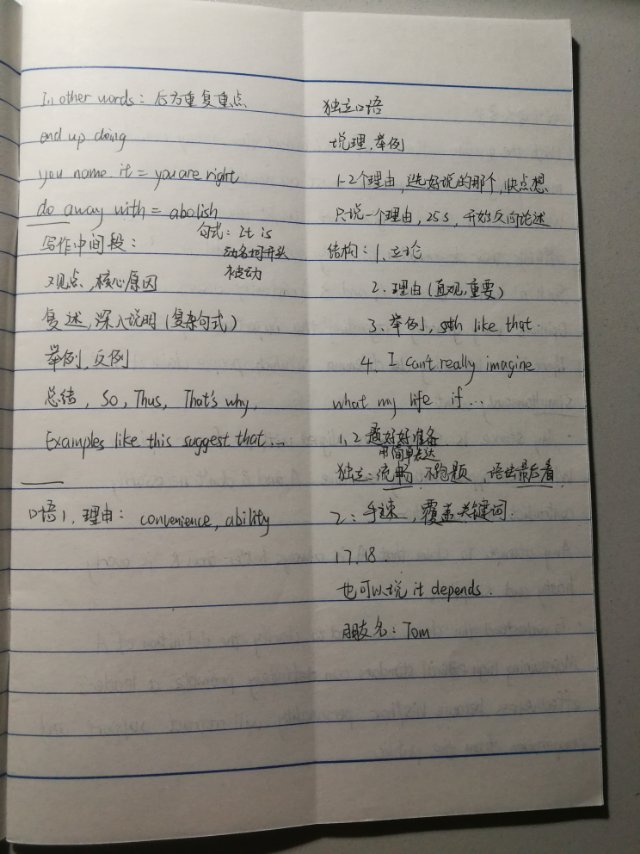 In other words: 后方重复重点
end up doing
you name it = you are right
do away with = abolish
写作中间段:
句式: It is
动名词开头
被动
观点,核心原因
复述,深入说明(复杂句式)
举例,反例
总结, So, Thus, That's why,
Examples like this suggest that...
口语1,理由: convenience, ability
独立口语
说理,举例
1-2个理由,选好说的那个,快点想
只说一个理由,25s,开始反向论述
结构: 1、立论
2、理由(直观,重要)
3、举例, sth like that.
4、I can't really imagine
what my life if...
1,2 最好好准备
用简单表达
独立:流畅,不跑题,语法最后看
2: 手速,覆盖关键词.
17.18.
也可以说 it depends.
朋友名: Tom